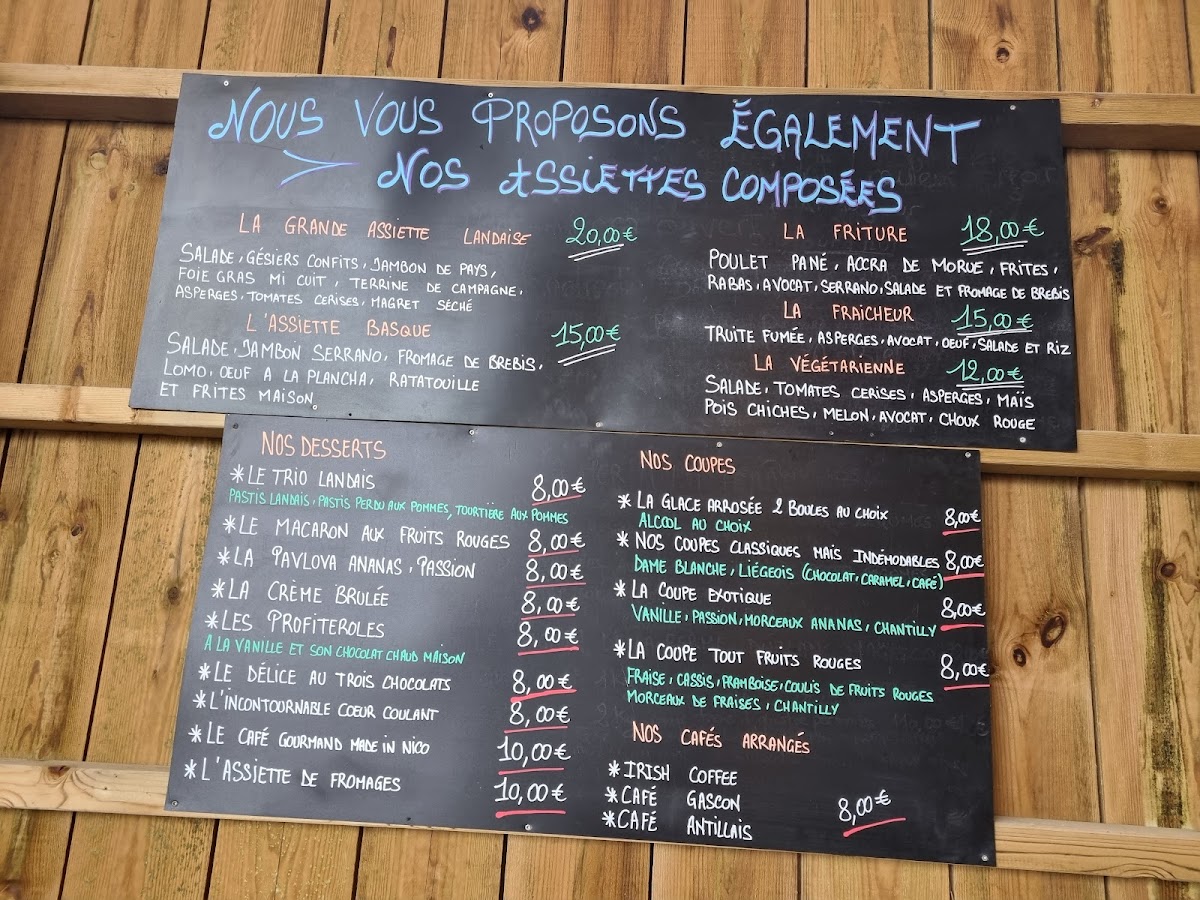 NOUS VOUS PROPOSONS ÉGALEMENT
NOS ASSIETTES COMPOSÉES
LA GRANDE ASSIETTE LANDAISE 20,00€
SALADE, GÉSIERS CONFITS, JAMBON DE PAYS,
FOIE GRAS MI CUIT, TERRINE DE CAMPAGNE,
ASPERGES, TOMATES CERISES, MAGRET SÉCHÉ
L'ASSIETTE BASQUE 15,00€
SALADE, JAMBON SERRANO, FROMAGE DE BREBIS,
LOMO, OEUF A LA PLANCHA, RATATOUILLE
ET FRITES MAISON
LA FRITURE 18,00€
POULET PANÉ, ACCRA DE MORUE, FRITES,
RABAS, AVOCAT, SERRANO, SALADE ET FROMAGE DE BREBIS
LA FRAICHEUR 15,00€
TRUITE FUMÉE, ASPERGES, AVOCAT, OEUF, SALADE ET RIZ
LA VÉGÉTARIENNE 12,00€
SALADE, TOMATES CERISES, ASPERGES, MAÏS
POIS CHICHES, MELON, AVOCAT, CHOUX ROUGE
NOS DESSERTS
*LE TRIO LANDAIS 8,00€
PASTIS LANDAIS, PASTIS PERDU AUX POMMES, TOURTIÈRE AUX POMMES
*LE MACARON AUX FRUITS ROUGES 8,00€
*LA PAVLOVA ANANAS, PASSION 8,00€
*LA CRÈME BRULÉE 8,00€
*LES PROFITEROLES 8,00€
A LA VANILLE ET SON CHOCOLAT CHAUD MAISON
*LE DÉLICE AU TROIS CHOCOLATS 8,00€
*L'INCONTOURNABLE COEUR COULANT 8,00€
*LE CAFÉ GOURMAND MADE IN NICO 10,00€
*L'ASSIETTE DE FROMAGES 10,00€
NOS COUPES
*LA GLACE ARROSÉE 2 BOULES AU CHOIX 8,00€
ALCOOL AU CHOIX
*NOS COUPES CLASSIQUES MAIS INDÉMODABLES 8,00€
DAME BLANCHE, LIÉGEOIS (CHOCOLAT, CARAMEL, CAFÉ)
*LA COUPE EXOTIQUE 8,00€
VANILLE, PASSION, MORCEAUX ANANAS, CHANTILLY
*LA COUPE TOUT FRUITS ROUGES 8,00€
FRAISE, CASSIS, FRAMBOISE, COULIS DE FRUITS ROUGES
MORCEAUX DE FRAISES, CHANTILLY
NOS CAFÉS ARRANGÉS
*IRISH COFFEE
*CAFÉ GASCON 8,00€
*CAFÉ ANTILLAIS